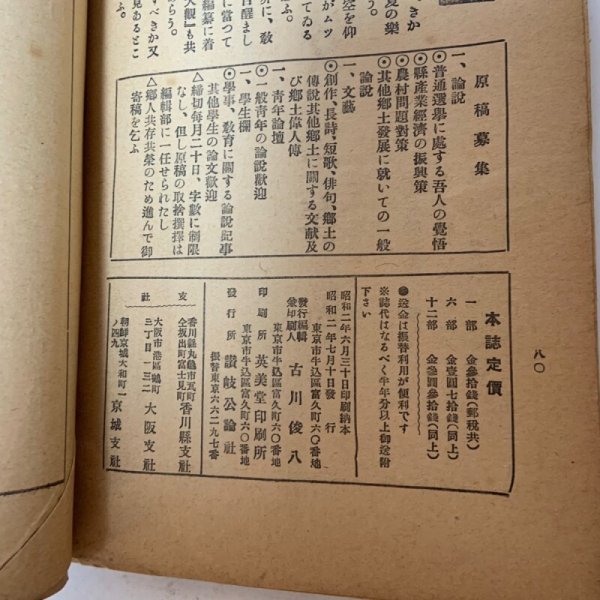 原稿募集
一、論説
◎普通選擧に處する吾人の覺悟
◎縣產業經濟の振興策
◎農村問題對策
◎其他鄕土發展に就いての一般
論說
一、文藝
◎創作、長詩、短歌、俳句、鄕土の
傳說其他鄕土に關する文献及
び鄕土偉人傳
一、靑年論壇
◎一般靑年の論說歡迎
一、學生欄
◎學事、敎育に關する論說記事
其他學生の論文歡迎
△締切每月二十日、字數に制限
なし、但し原稿の取捨撰擇は
編輯部に一任せられたし
△鄕人共存共榮のため進んで御
寄稿を乞ふ
八〇
本誌定價
一部 金參拾錢(郵稅共)
六部 金壹圓七拾錢(同上)
十二部 金參圓參拾錢(同上)
●送金は振替利用が便利です
※誌代はなるべく半年分以上御送附
下さい
昭和二年六月三十日印刷納本
昭和二年七月十日發行
東京市牛込區富久町六〇番地
發行編輯
兼印刷人 古川俊八
東京市牛込區富久町六〇番地
印刷所 英美堂印刷所
東京市牛込區富久町六〇番地
發行所 讚岐公論社
振替東京六六二九七番
支社
香川縣丸龜市瓦町
仝坂出町富士見町 香川縣支社
大阪市港區鶴町
三丁目一三二 大阪支社
朝鮮京城大和町一
ノ四九 京城支社